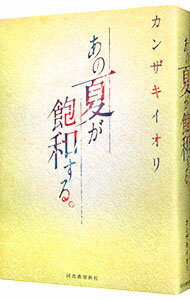 カンザキイオリ
あの夏が
飽和する。
河出書房新社
あの夏が飽和する。